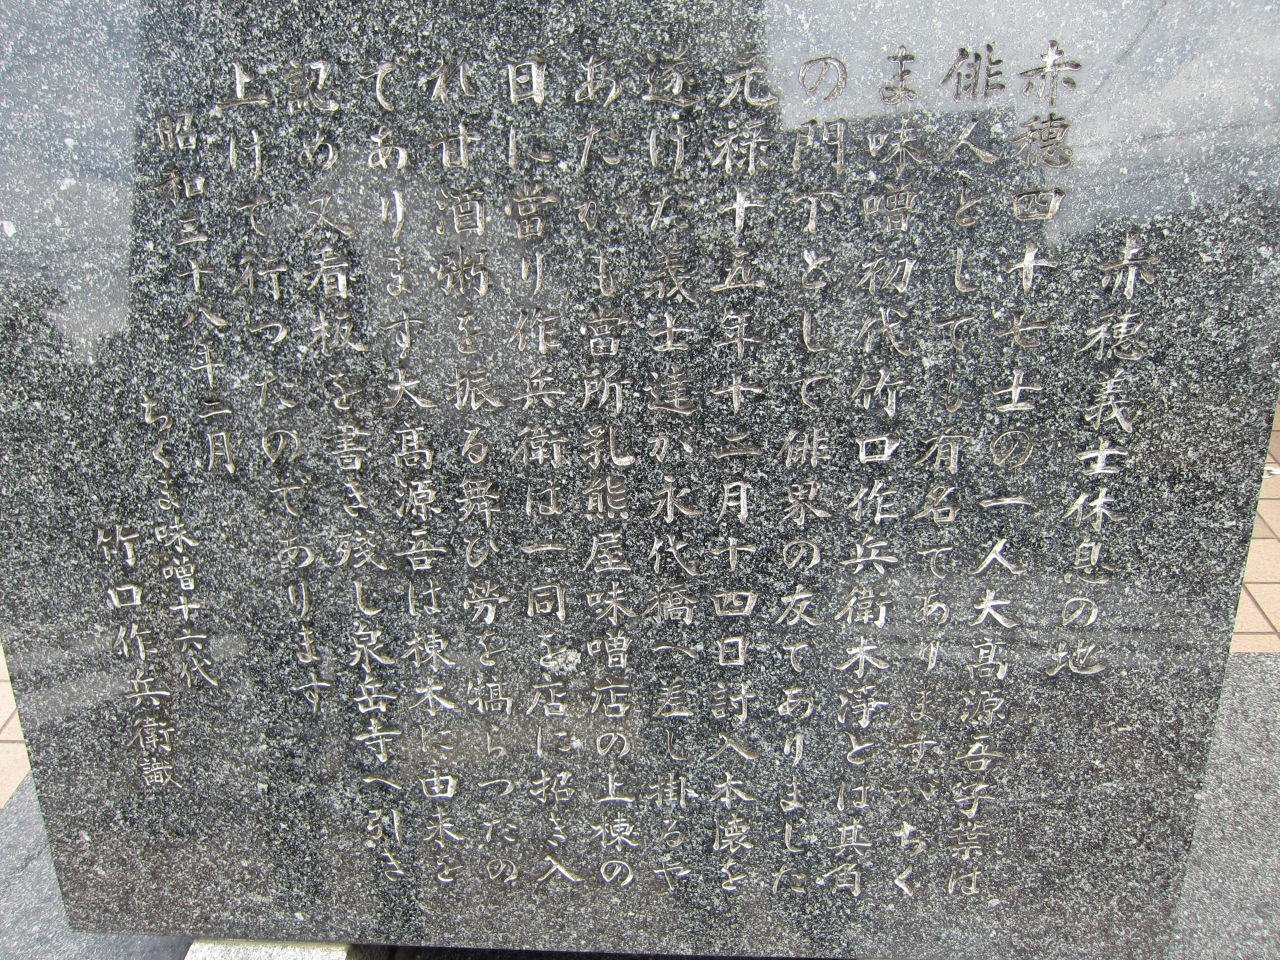 赤穂義士休息の地
赤穂四十七士の一人大高源吾子葉は
俳人としても有名でありますがちく
ま味噌初代竹口作兵衛木浄とは其角
の門下として俳界の友でありました
元禄十五年十二月十四日討入本懐を
遂げた義士達が永代橋へ差し掛るや
あたかも當所乳熊屋味噌店の上棟の
日に當り作兵衛は一同を店に招き入
れ甘酒粥を振る舞ひ労を犒らつたの
であります大高源吾は棟木に由来を
認め又看板を書き残し泉岳寺へ引き
上けて行つたのであります
昭和三十八年二月
ちくま味噌十六代
竹口作兵衛識